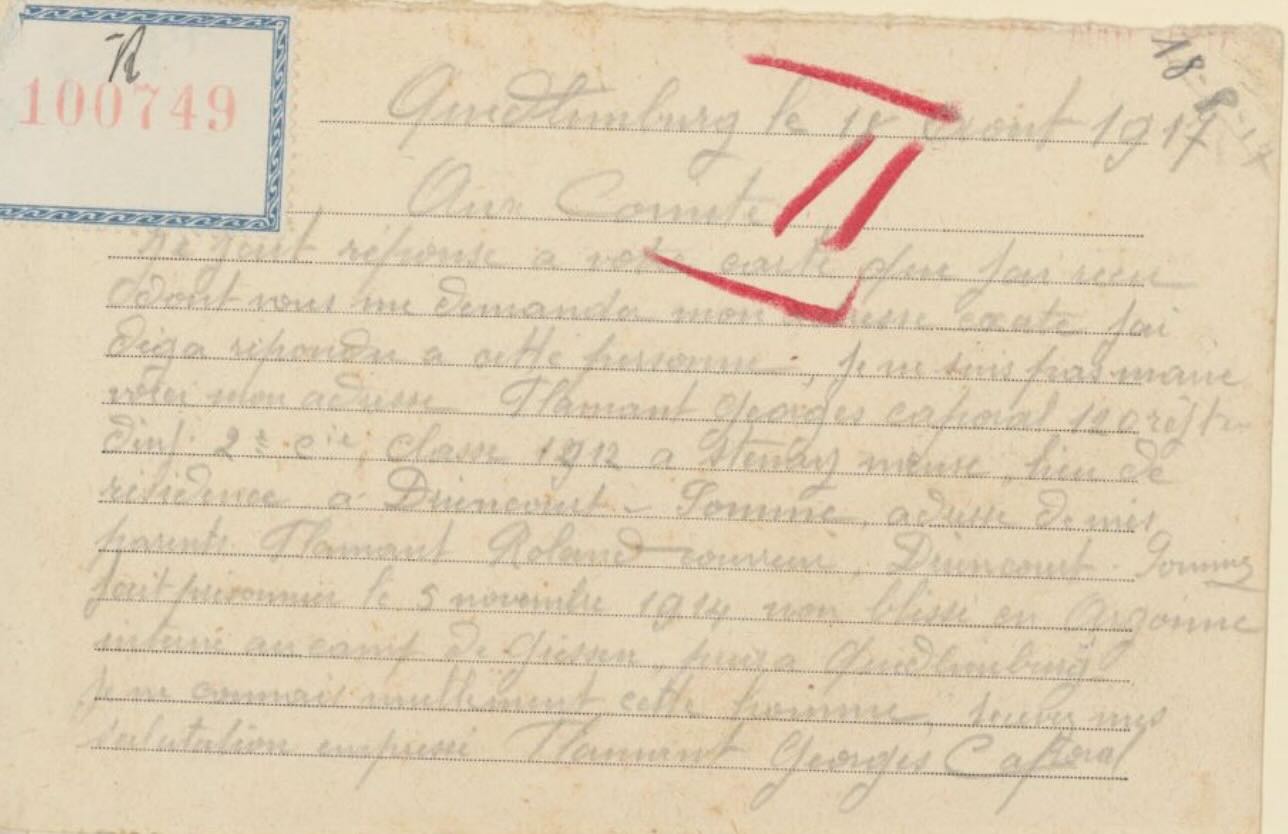 R
100749
18-8-17
Quedlimburg le 18 Aout 1917
II
Aux Comite
Je fait réponse a votre carte que j'ai recu
dont vous me demander mon adresse exate j'ai
diga répondu a cette personne, je ne suis pas marie
voici mon adresse Flamant Georges caporal 120 régt
d'inf. 2e cie, classe 1912 a Stenay meuse, lieu de
résidence a Driencourt - Somme, adresse de mes
parents Flamant Roland couvreur, Driencourt Somme
fait prisonnier le 5 novembre 1914 non blissé en Argonne
interné au camp de Giessen, puis a Quedlimburg
je ne connais nullement cette homme, recevez mes
salutation empressé Flamant Georges Caporal